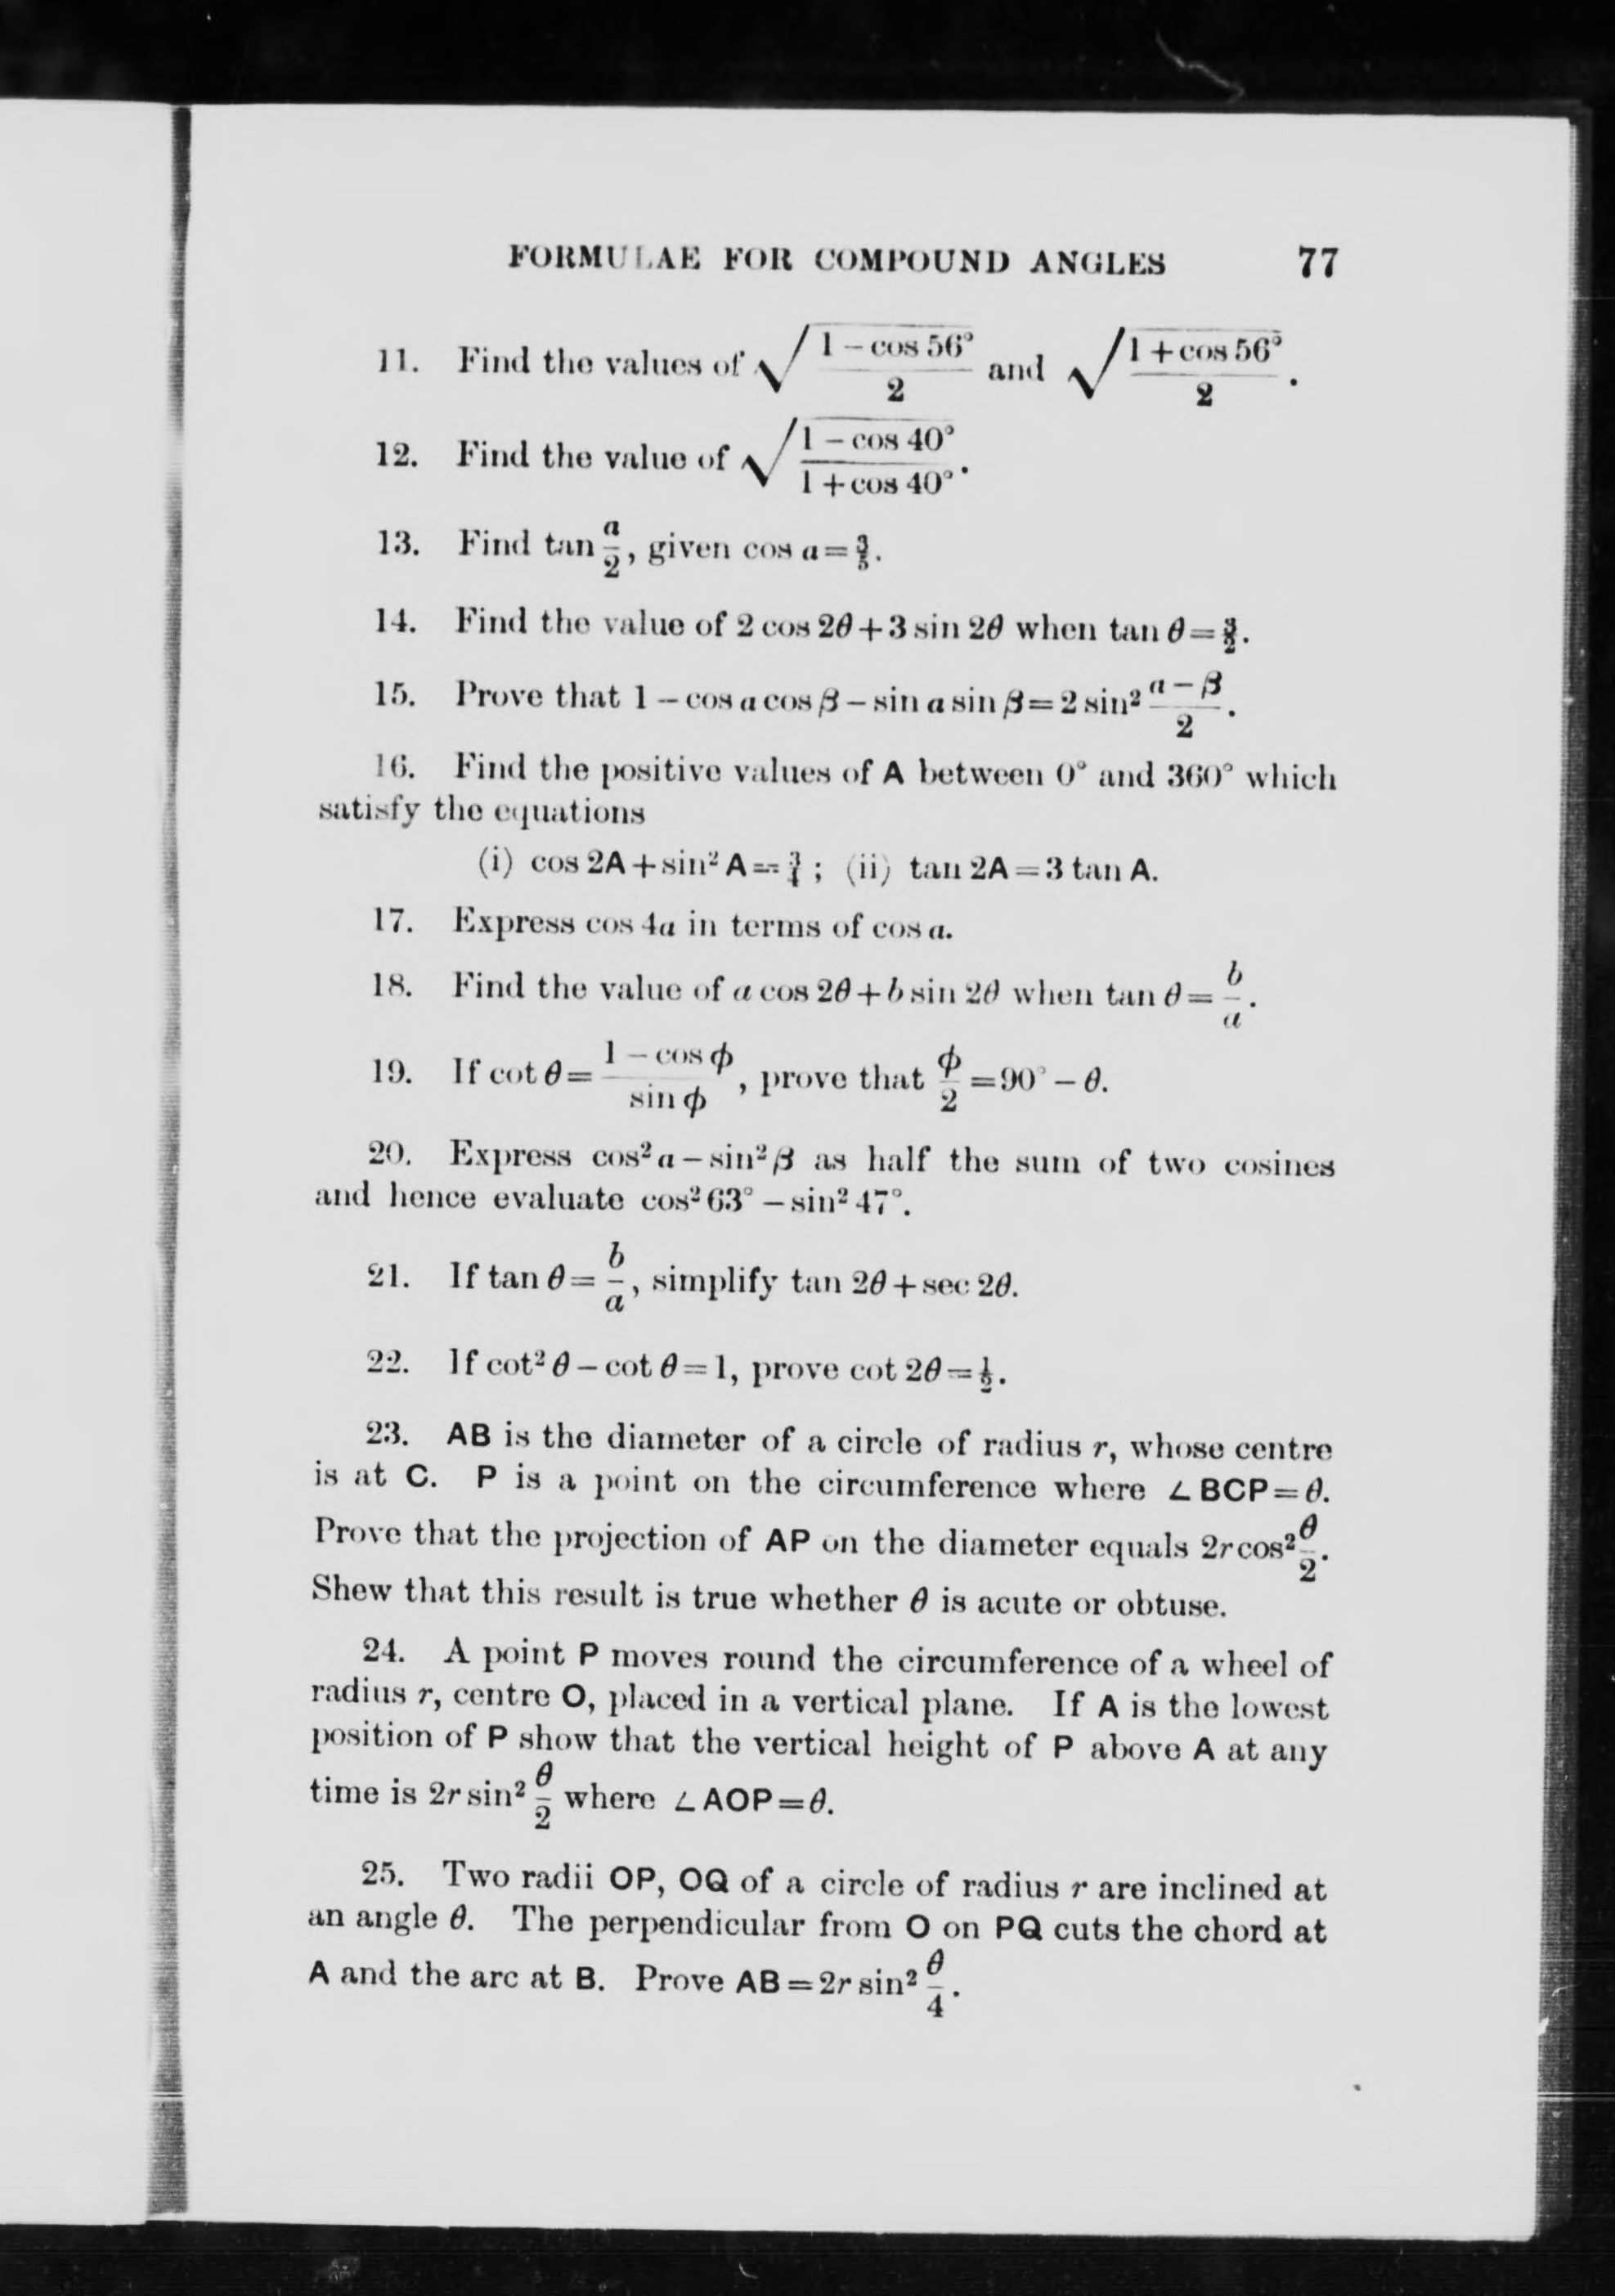 FORMULAE FOR COMPOUND ANGLES 77
11. Find the values of √((1 − cos 56°)/2) and √((1 + cos 56°)/2).
12. Find the value of √((1 − cos 40°)/(1 + cos 40°)).
13. Find tan α/2, given cos α = 3/5.
14. Find the value of 2 cos 2θ + 3 sin 2θ when tan θ = 3/2.
15. Prove that 1 − cos α cos β − sin α sin β = 2 sin² (α − β)/2.
16. Find the positive values of A between 0° and 360° which
satisfy the equations
(i) cos 2A + sin² A = 3/4 ; (ii) tan 2A = 3 tan A.
17. Express cos 4α in terms of cos α.
18. Find the value of a cos 2θ + b sin 2θ when tan θ = b/a.
19. If cot θ = (1 − cos ϕ)/sin ϕ, prove that ϕ/2 = 90° − θ.
20. Express cos² α − sin² β as half the sum of two cosines
and hence evaluate cos² 63° − sin² 47°.
21. If tan θ = b/a, simplify tan 2θ + sec 2θ.
22. If cot² θ − cot θ = 1, prove cot 2θ = 1/2.
23. AB is the diameter of a circle of radius r, whose centre
is at C. P is a point on the circumference where ∠BCP = θ.
Prove that the projection of AP on the diameter equals 2r cos² θ/2.
Shew that this result is true whether θ is acute or obtuse.
24. A point P moves round the circumference of a wheel of
radius r, centre O, placed in a vertical plane. If A is the lowest
position of P show that the vertical height of P above A at any
time is 2r sin² θ/2 where ∠AOP = θ.
25. Two radii OP, OQ of a circle of radius r are inclined at
an angle θ. The perpendicular from O on PQ cuts the chord at
A and the arc at B. Prove AB = 2r sin² θ/4.